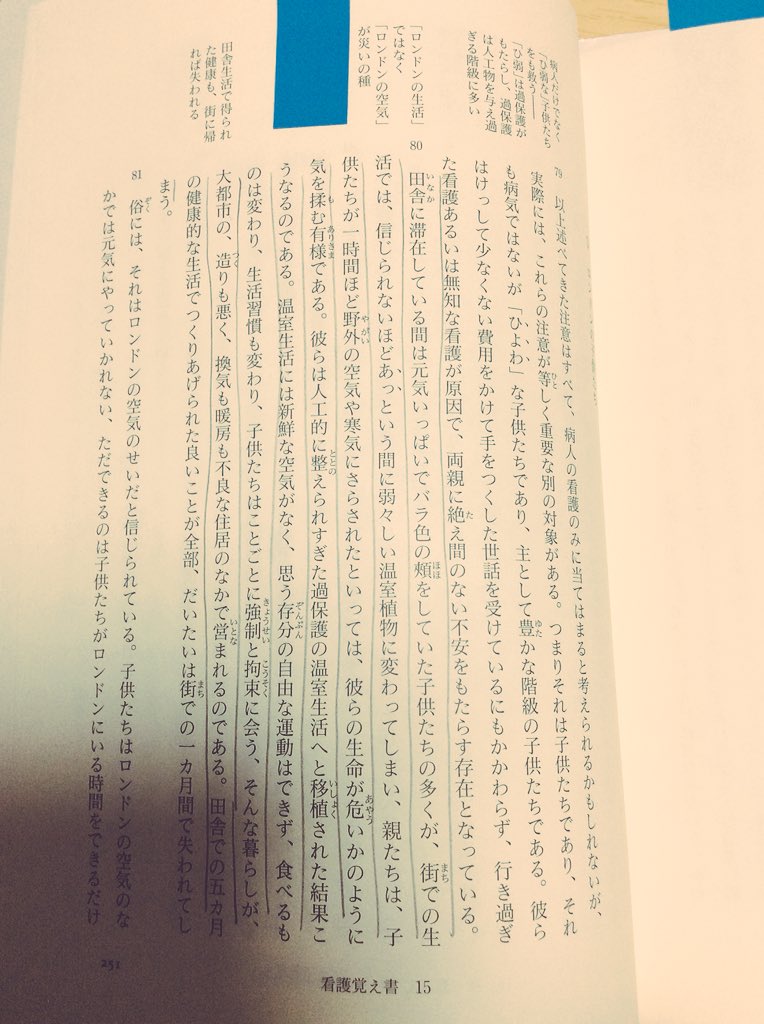 病人だけでなく
「ひ弱な」子供たち
をも救う――
「ひ弱」は過保護が
もたらし、過保護
は人工物を与え過
ぎる階級に多い
「ロンドンの生活」
ではなく
「ロンドンの空気」
が災いの種
田舎生活で得られ
た健康も、街に帰
れば失われる
79 以上述べてきた注意はすべて、病人の看護のみに当てはまると考えられるかもしれないが、
実際には、これらの注意が等しく重要な別の対象がある。つまりそれは子供たちであり、それ
も病気ではないが「ひよわ」な子供たちであり、主として豊かな階級の子供たちである。彼ら
はけっして少なくない費用をかけて手をつくした世話を受けているにもかかわらず、行き過ぎ
た看護あるいは無知な看護が原因で、両親に絶え間のない不安をもたらす存在となっている。
80 田舎に滞在している間は元気いっぱいでバラ色の頰をしていた子供たちの多くが、街での生
活では、信じられないほどあっという間に弱々しい温室植物に変わってしまい、親たちは、子
供たちが一時間ほど野外の空気や寒気にさらされたといっては、彼らの生命が危いかのように
気を揉む有様である。彼らは人工的に整えられすぎた過保護の温室生活へと移植された結果こ
うなるのである。温室生活には新鮮な空気がなく、思う存分の自由な運動はできず、食べるも
のは変わり、生活習慣も変わり、子供たちはことごとに強制と拘束に会う、そんな暮らしが、
大都市の、造りも悪く、換気も暖房も不良な住居のなかで営まれるのである。田舎での五カ月
の健康的な生活でつくりあげられた良いことが全部、だいたいは街での一カ月間で失われてし
まう。
81 俗には、それはロンドンの空気のせいだと信じられている。子供たちはロンドンの空気のな
かでは元気にやっていかれない、ただできるのは子供たちがロンドンにいる時間をできるだけ
251
看護覚え書 15